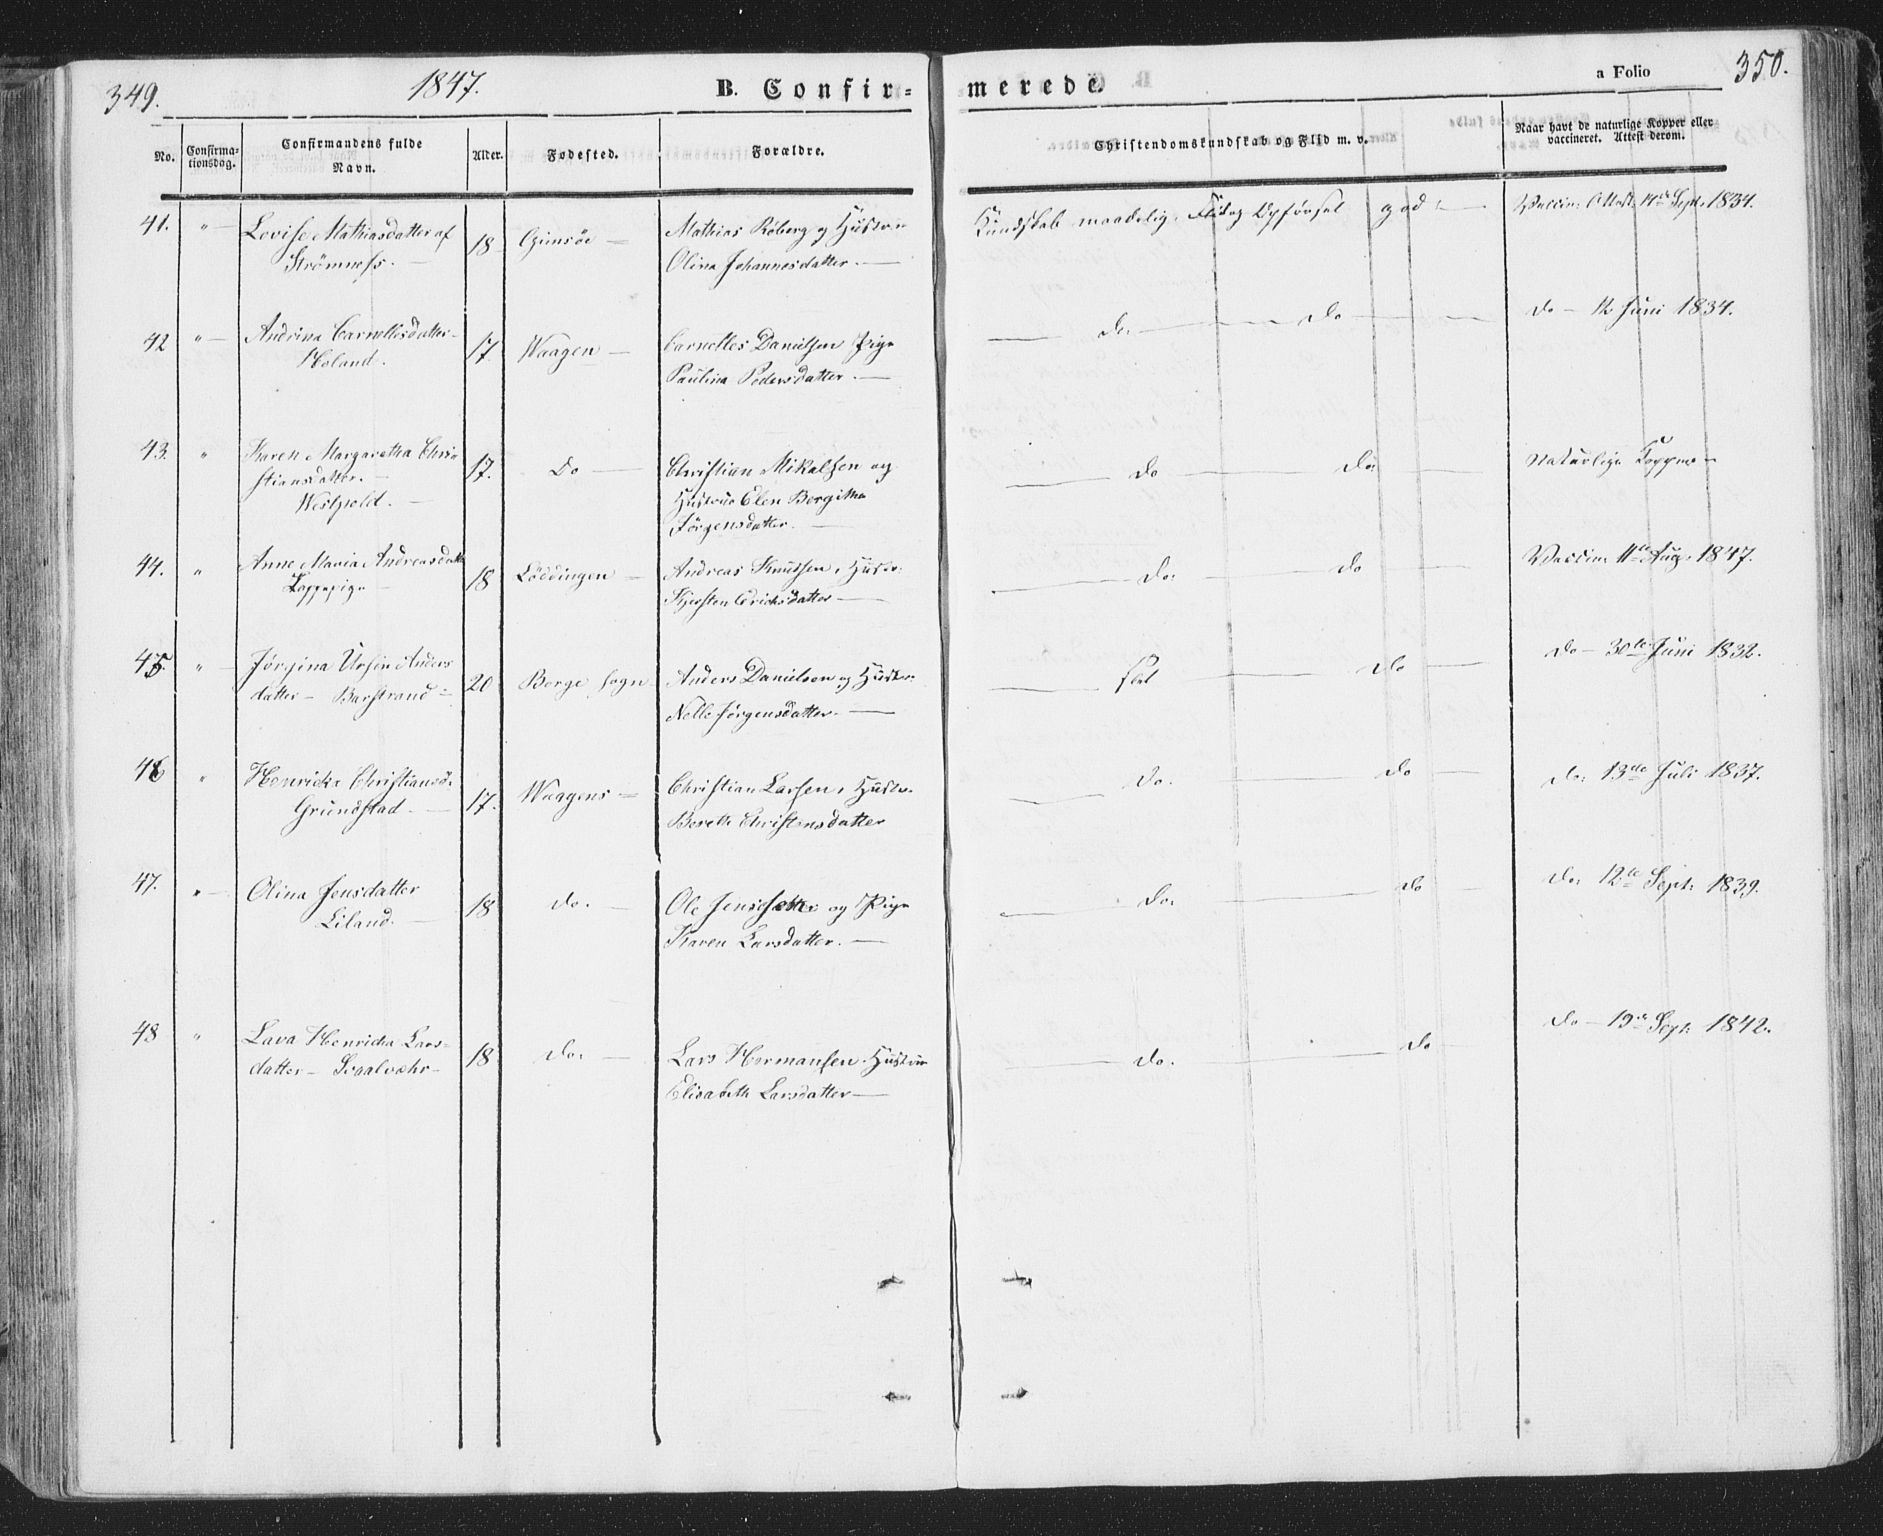 349.
1847.
B. Confir=
merede.
a Folio
350.
No.
Confirma-
tionsdag.
Confirmandens fulde
Navn.
Alder.
Fødested.
Forældre.
Christendomskundskab og Flid m. v.
Naar havt de naturlige Kopper eller
vaccineret. Attest derom.
41. " Lovise Mathiasdatter af
Strømness.
18 Gimsöe
Mathias Röberg og Hustrue
Olina Johannesdatter.
Kundskab maadelig. Flid og Opførsel god
Vaccin: Attest: 14de Sept: 1834.
42 " Andrina Cornellisdatter
Holand.
17. Waagen
Cornelles Danielsen Pige
Paulina Pedersdatter.
do. do
do 12 Juni 1834.
43. " Karen Margaretha Chri-
stiansdatter.
Westpold.
17. Do
Christian Mikalsen og
Hustrue Elen Bergitha
Jörgensdatter.
do do
Naturlige Kopper
44. " Anne Maria Andreasdatt
18 Löddingen
Andreas Knutsen, Hustr:
Kjersten Ericksdatter
do: do
Vaccin: 11te Aug: 1847.
45. " Jörgina Ursin Anders
datter Barstrand
20 Borge sogn
Anders Danielsen og Hustr:
Nelle Jörgensdatter.
do
do 30te Juni 1832.
46 " Henricka Christiansd:
Grundstad.
17. Waagens
Christian Larsen, Hustr.
Bereth Christensdatter
do. do
do: 13de Juli 1837.
47. " Olina Jensdatter
Liland.
18 do.
Ole og Pige
Karen Larsdatter.
do: do
do: 12te Sept: 1839.
48 " Lava Henricka Lars-
datter Svaalvæhr
18 do:
Lars Hermansen Hustrue
Elisabeth Larsdatter
do. do
do 19de Sept: 1842.